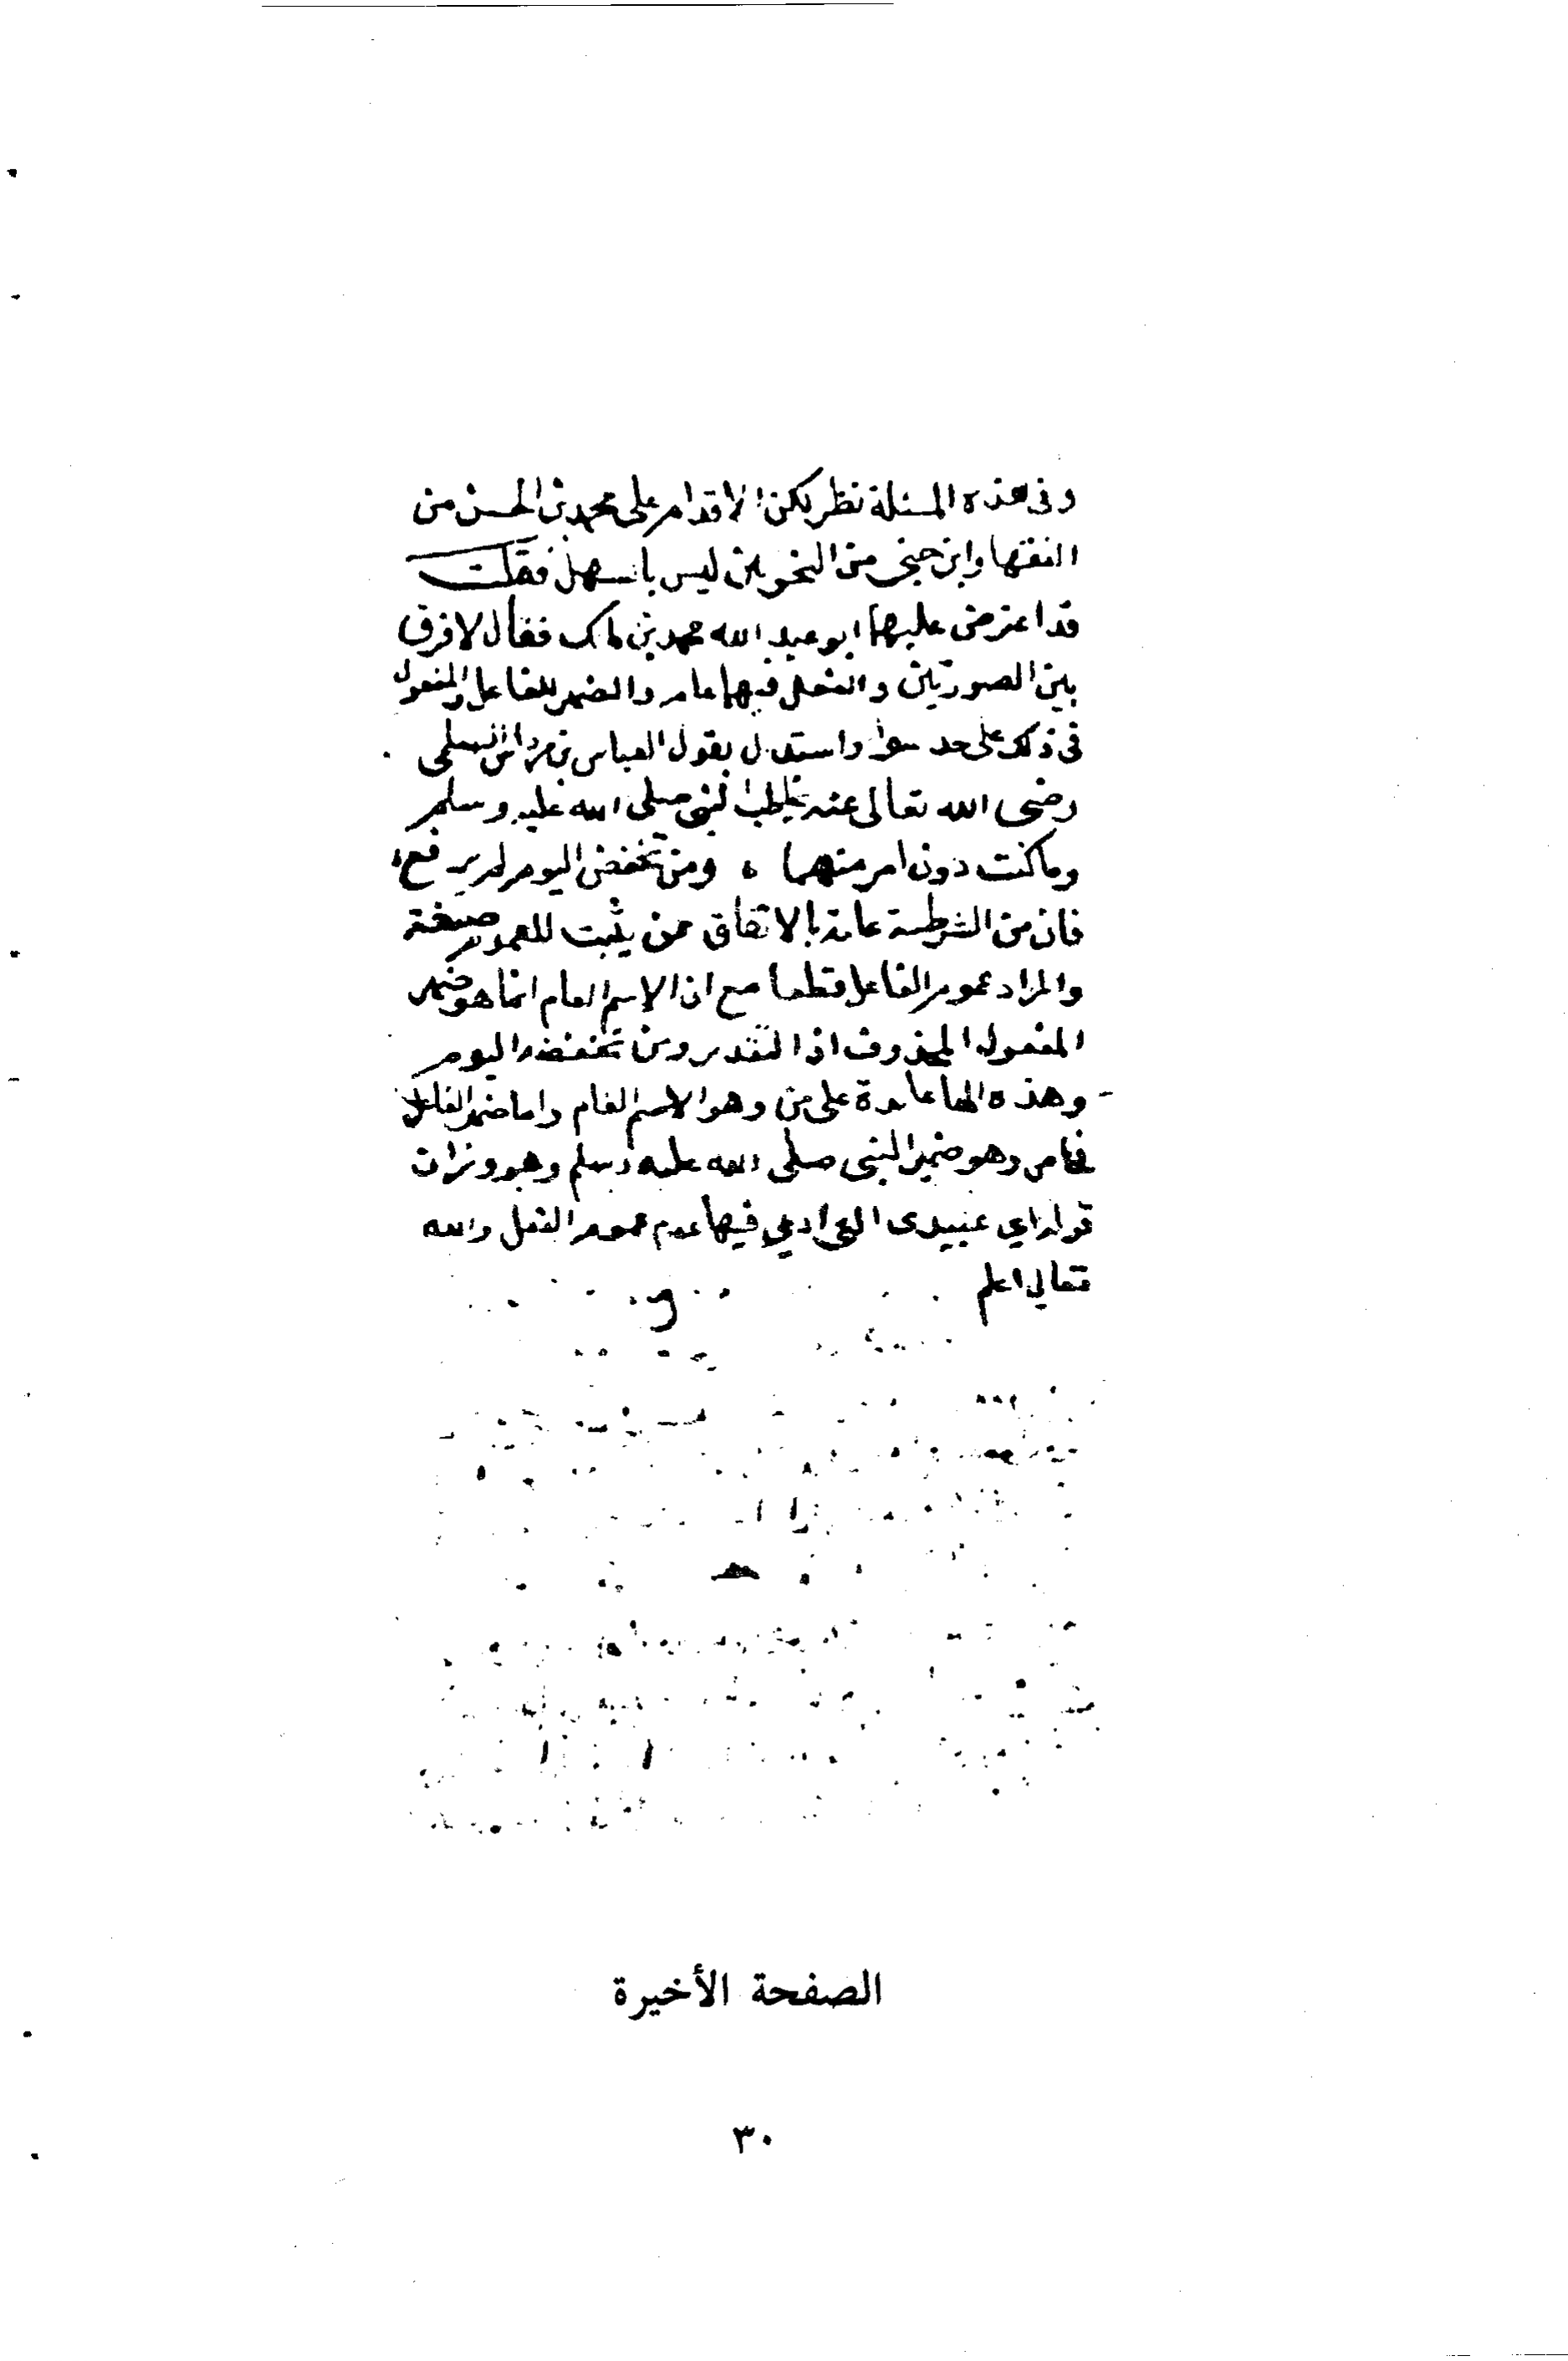 وفى هذه المسئلة نظر لكن الاقدام على محمد بن الحسن من
الفقها وابن جنى من النحويين ليس بالسهل فقلت
قد اعترض عليهما ابو عبد الله محمد بن مالك فقال لا فرق
بين الصورتين والفعل فيهما عام والضمير للفاعل والمفعول
فى ذلك على حد سوا واستدل بقول العباس بن مرداس السلمى
رضى الله تعالى عنه يخاطب النبى صلى الله عليه وسلم
وما كنت دون امر منهما ، ومن تخفض اليوم لم يرفع ،
فان من الشرطية عامة بالاتفاق ممن يثبت للعموم صيغة
والمراد عموم الفاعل قطعا مع ان الاسم العام انما هو ضمير
المفعول المحذوف اذ التقدير ومن تخفضه اليوم
وهذه الها عايدة على من وهو الاسم العام واما ضمير الفاعل
فخاص وهو ضمير النبى صلى الله عليه وسلم وهو وزان
قوله اي عبيدى التى ادعي فيها عدم عموم الفعل والله
تعالى اعلم
الصفحة الأخيرة
٣٠